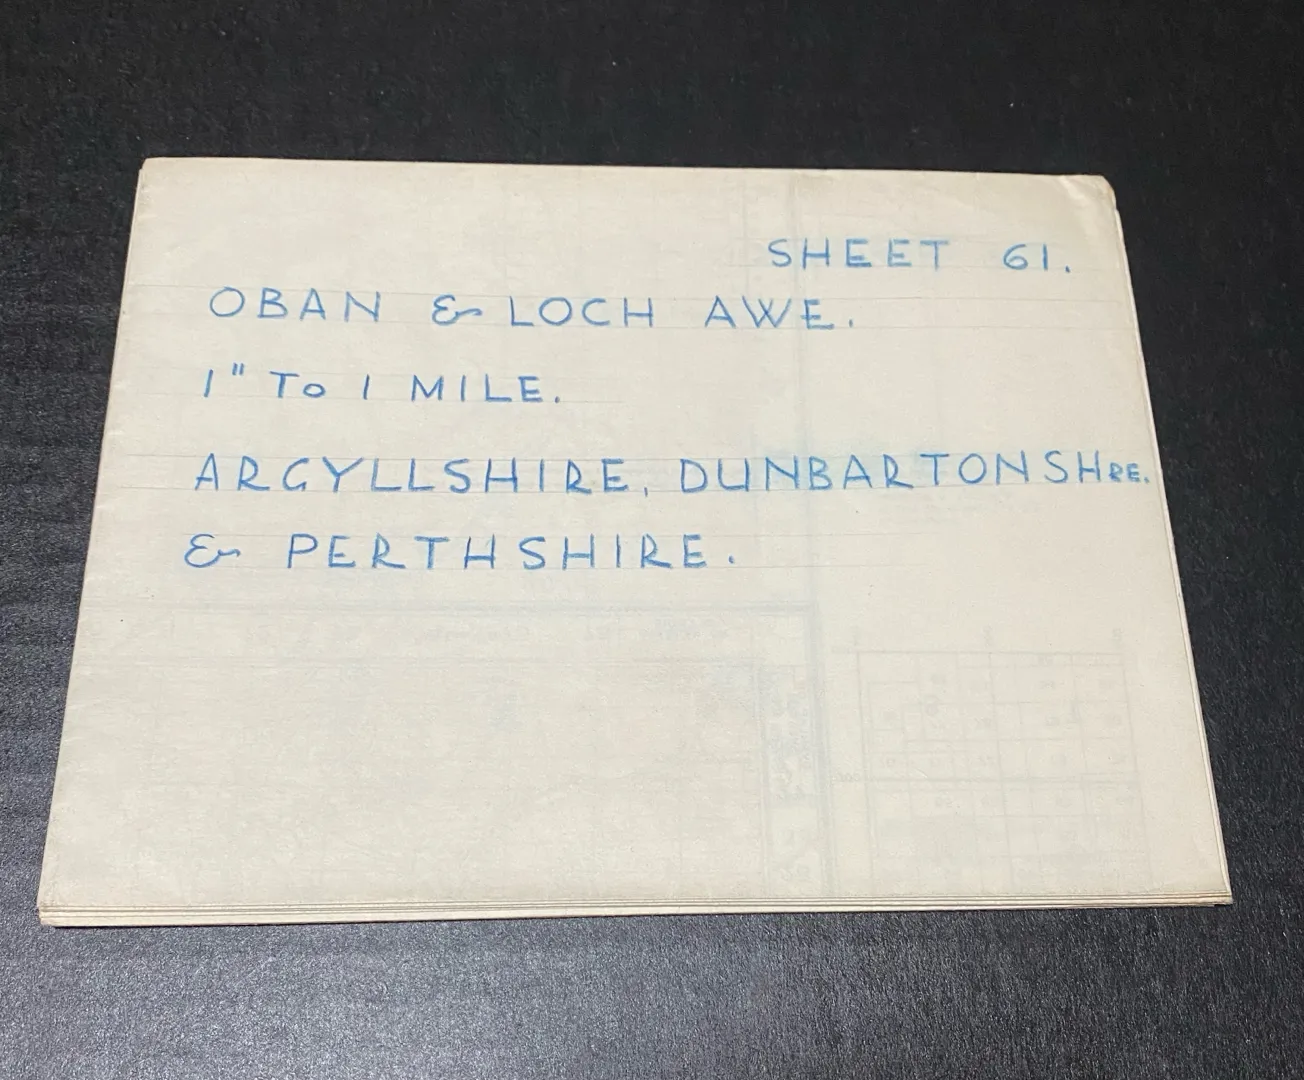 SHEET 61.
OBAN & LOCH AWE.
1" To 1 MILE.
ARGYLLSHIRE, DUNBARTONSHRE.
& PERTHSHIRE.